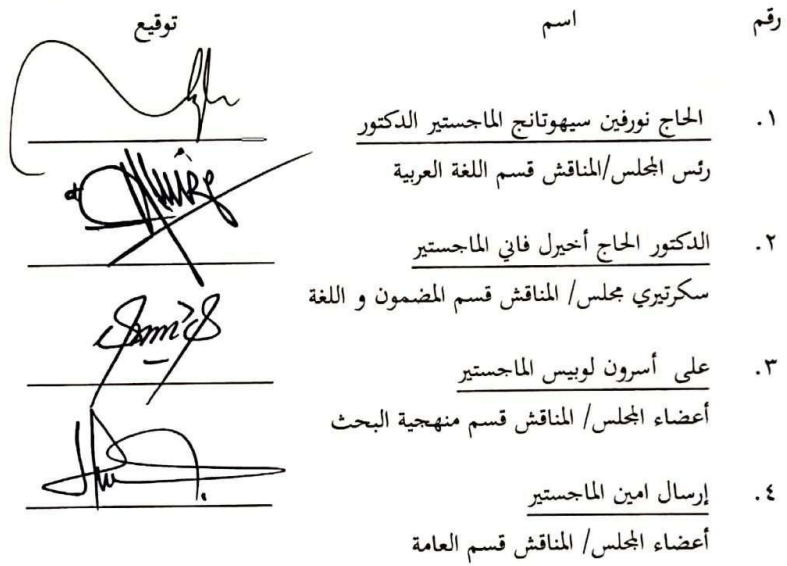 رقم اسم توقيع
١. الحاج نورفين سيهوتانج الماجستير الدكتور
رئس المجلس/المناقش قسم اللغة العربية
٢. الدكتور الحاج أخيرل فاني الماجستير
سكرتيري مجلس/ المناقش قسم المضمون و اللغة
٣. على أسرون لوبيس الماجستير
أعضاء المجلس/ المناقش قسم منهجية البحث
٤. إرسال امين الماجستير
أعضاء المجلس/ المناقش قسم العامة